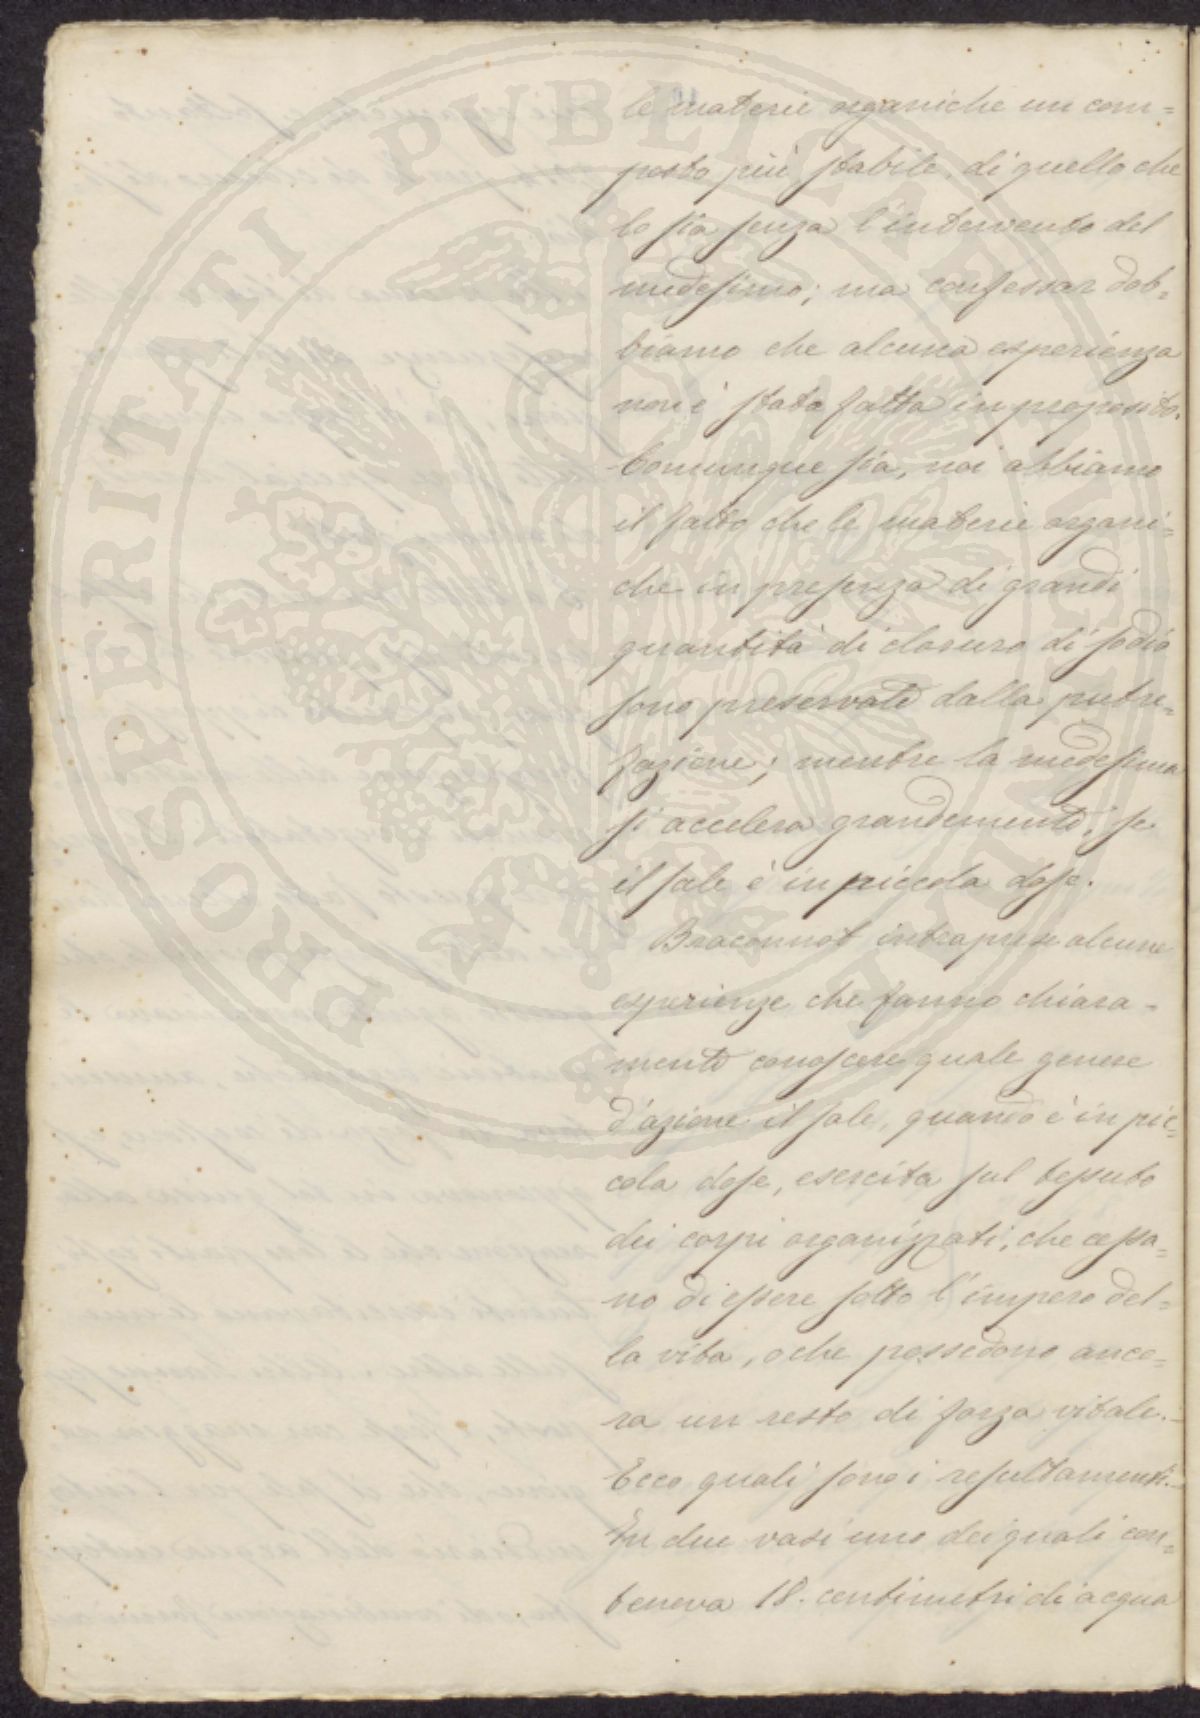 le materie organiche un com=
posto più stabile, di quello che
lo sia senza l'intervento del
medesimo; ma confessar dob=
biamo che alcuna esperienza
non è stata fatta in proposito.
Comunque sia, noi abbiamo
il fatto che le materie organi=
che in presenza di grandi
quantità di cloruro di sodio
sono preservate dalla putre=
fazione; mentre la medesima
si accelera grandemente, se
il sale è in piccola dose.
Braconnot intraprese alcune
esperienze che fanno chiara=
mente conoscere quale genere
d'azione il sale, quando è in pic=
cola dose, esercita sul tessuto
dei corpi organizzati, che cessa=
no di essere sotto l'impero del=
la vita, o che possedono anco=
ra un resto di forza vitale.
Ecco quali sono i resultamenti.
In due vasi uno dei quali con=
teneva 18. centimetri di acqua
PROSPERITATI PVBLICAE AVGENDAE